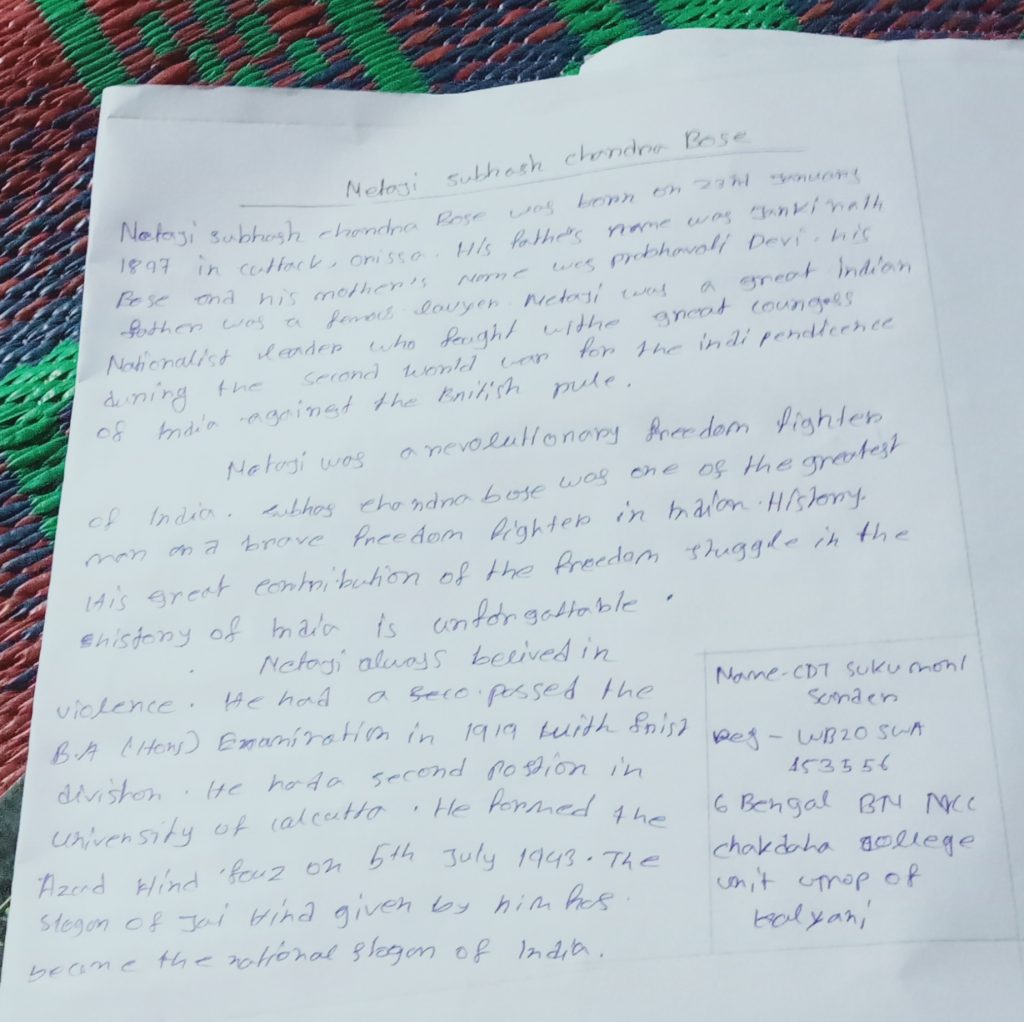 Netaji subhash chandra Bose
Netaji subhash chandra Bose was born on 23rd January
1897 in cuttack, orissa. His father's name was Janki nath
Bose and his mother's Name was prabhavati Devi. his
father was a famous lawyer. Netaji was a great indian
Nationalist leader who fought withe great courgess
during the second world war for the indi pendicence
of India against the British rule.
Netaji was a revolutionary freedom fighter
of India. subhas chandra bose was one of the greatest
man and brave freedom fighter in Indian History.
His great contribution of the freedom stuggle in the
history of India is unforgattable.
Netaji always belived in
violence. He had a passed the
B.A (Hons) Examination in 1919 with
division. He had a second postion in
University of calcutta. He formed the
Azad Hind fauz on 5th July 1943. The
slogan of Jai Hind given by him has
became the national slogan of India.
Name-CDT sukumoni
Sarder
Reg - WB20 SWA
153556
6 Bengal BN NCC
chakdaha college
unit group of
kalyani